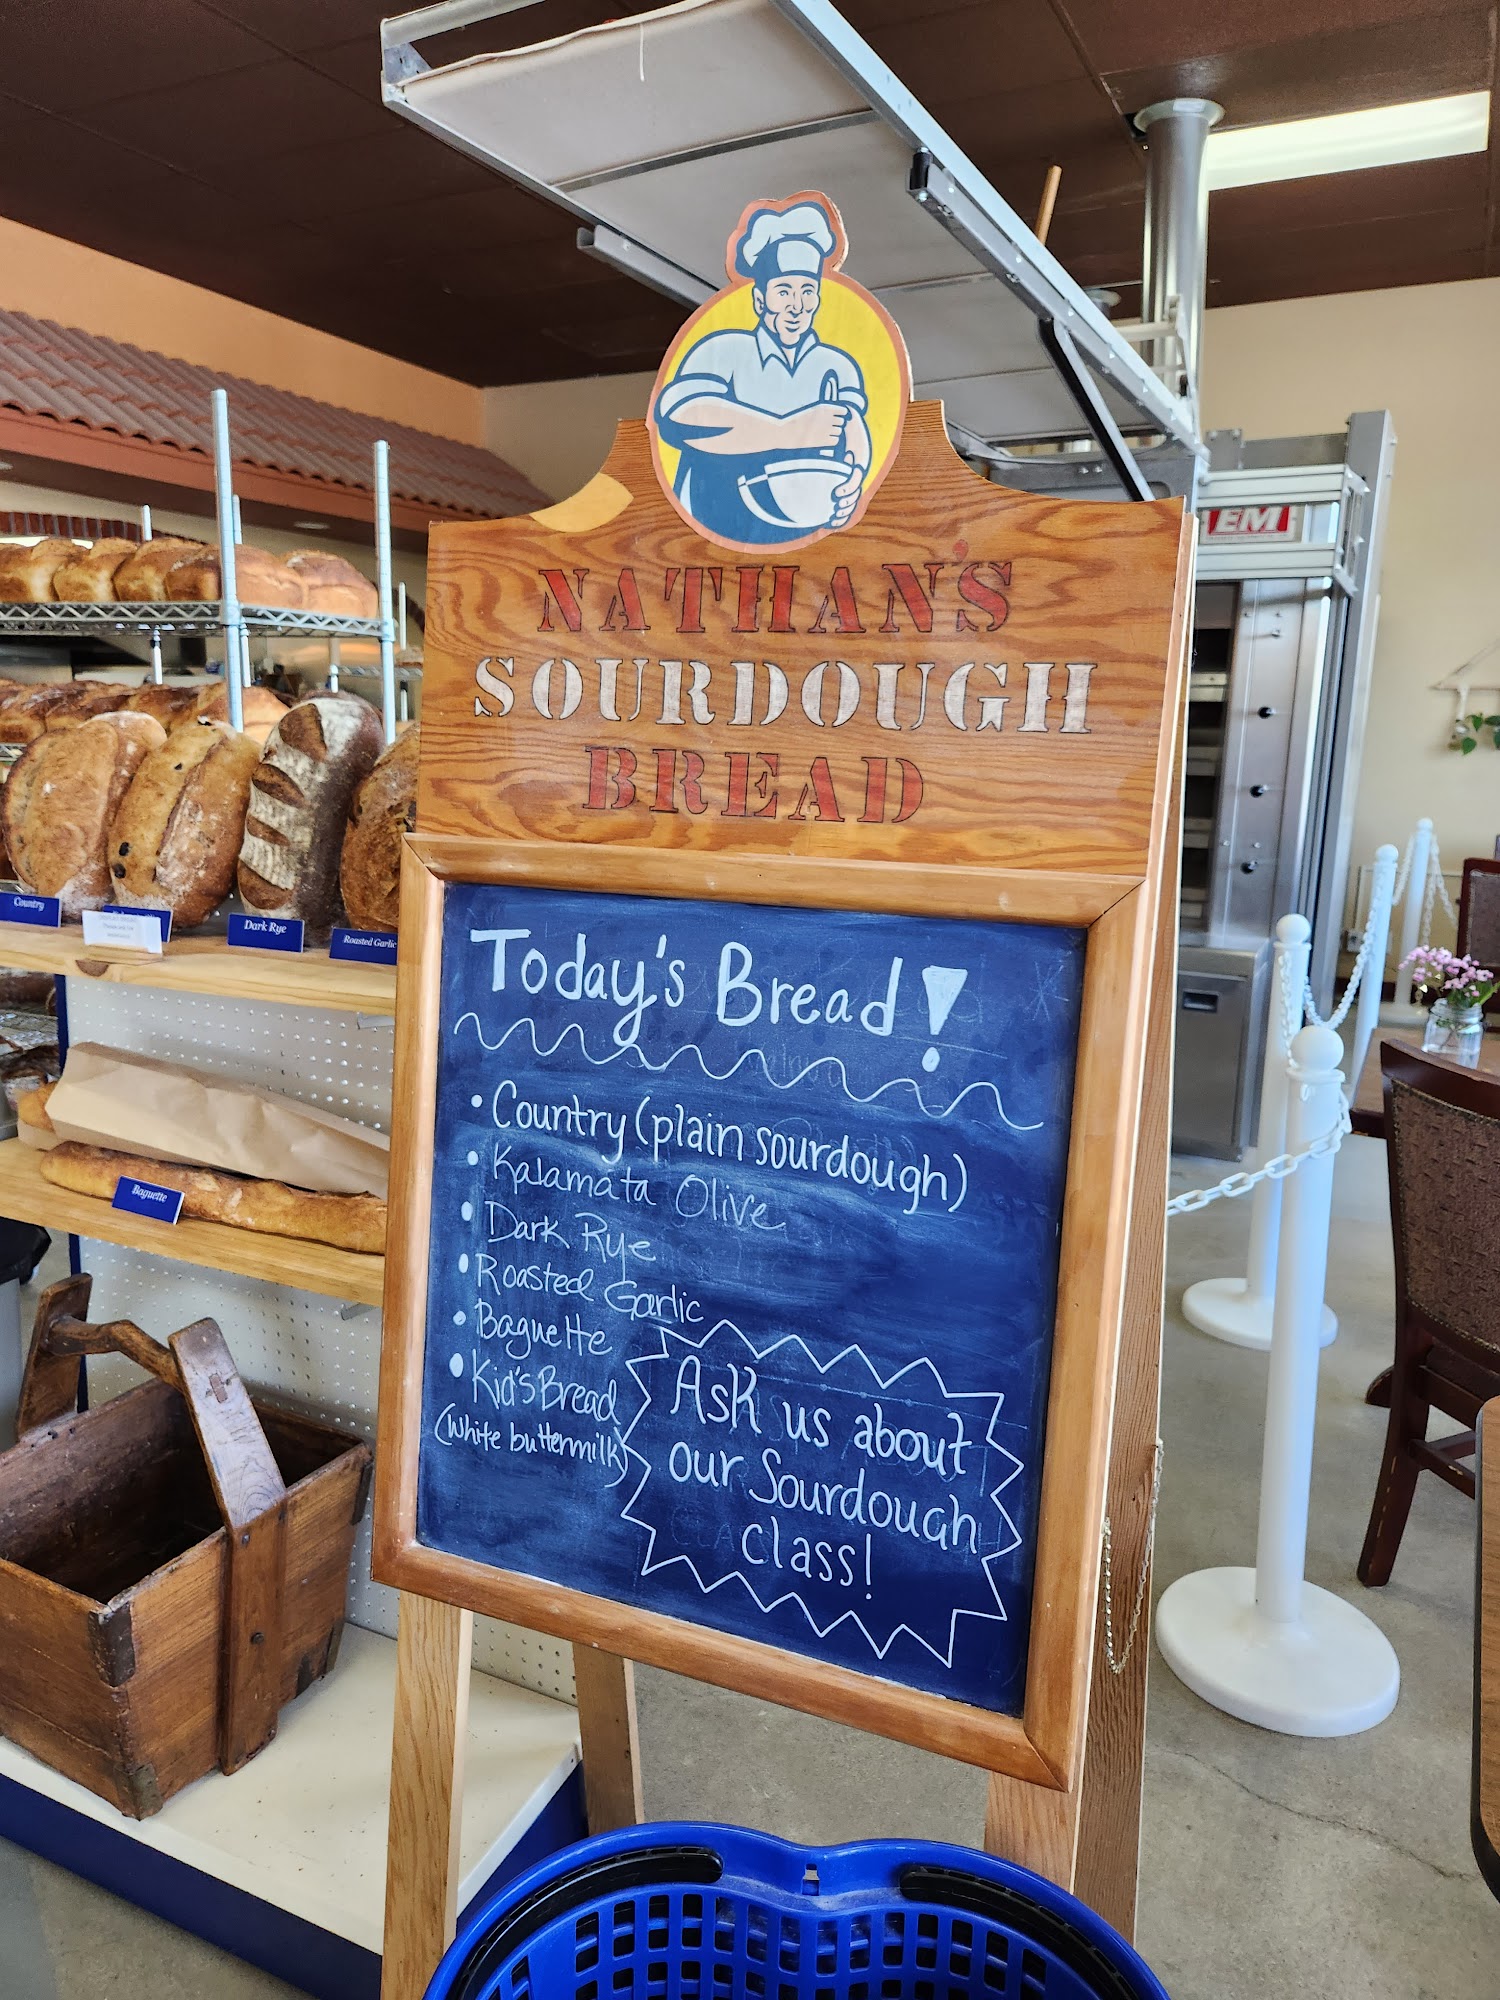 NATHAN'S
SOURDOUGH
BREAD
Today's Bread!
• Country (plain sourdough)
• Kalamata Olive
• Dark Rye
• Roasted Garlic
• Baguette
• Kid's Bread
(White buttermilk)
Ask us about
our Sourdough
class!
Country
Dark Rye
Roasted Garlic
Baguette
EM